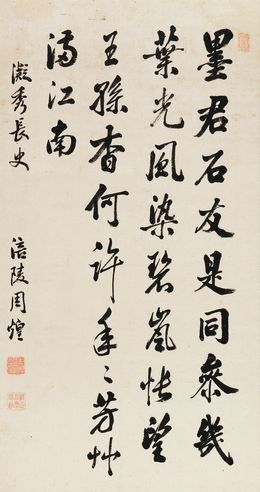 墨君石友是同參幾
葉光風染碧嵐悵望
王孫杳何許年〻芳艸
滿江南
凝秀長史
涪陵周煌